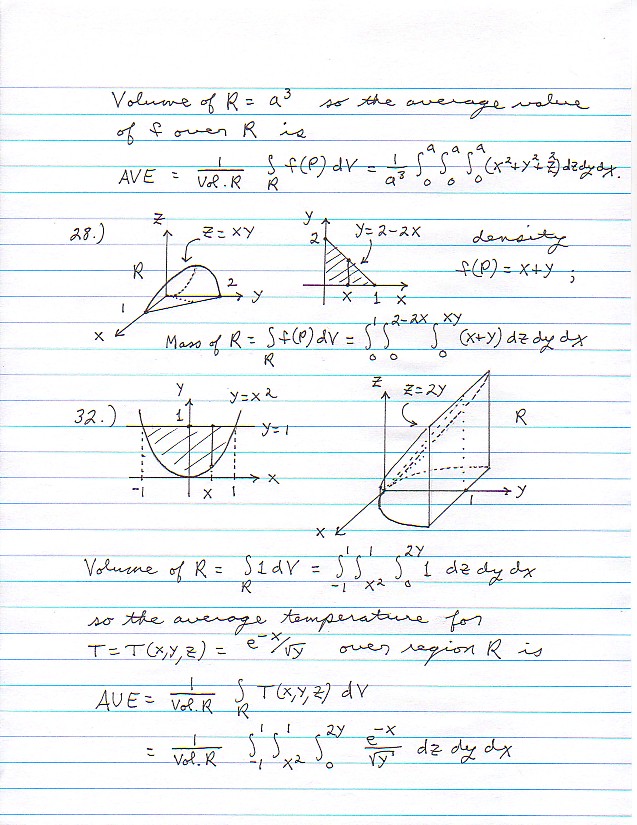 Volume of R = a³ so the average value
of f over R is
AVE = 1/Vol. R ∫_R f(P) dV = 1/a³ ∫₀ᵃ ∫₀ᵃ ∫₀ᵃ (x²+y²+z²) dz dy dx.
28.) z z = xy y y = 2-2x density
R 2 2 f(P) = x+y ;
1 y x 1 x
x
Mass of R = ∫_R f(P) dV = ∫₀¹ ∫₀^(2-2x) ∫₀^(xy) (x+y) dz dy dx
32.) y y = x² z z = 2y
1 y = 1 R
-1 x 1 x 1 y
x
Volume of R = ∫_R 1 dV = ∫₋₁¹ ∫_(x²)^1 ∫₀^(2y) 1 dz dy dx
so the average temperature for
T = T(x,y,z) = e^(-x)/√y over region R is
AVE = 1/Vol. R ∫_R T(x,y,z) dV
= 1/Vol. R ∫₋₁¹ ∫_(x²)^1 ∫₀^(2y) e^(-x)/√y dz dy dx